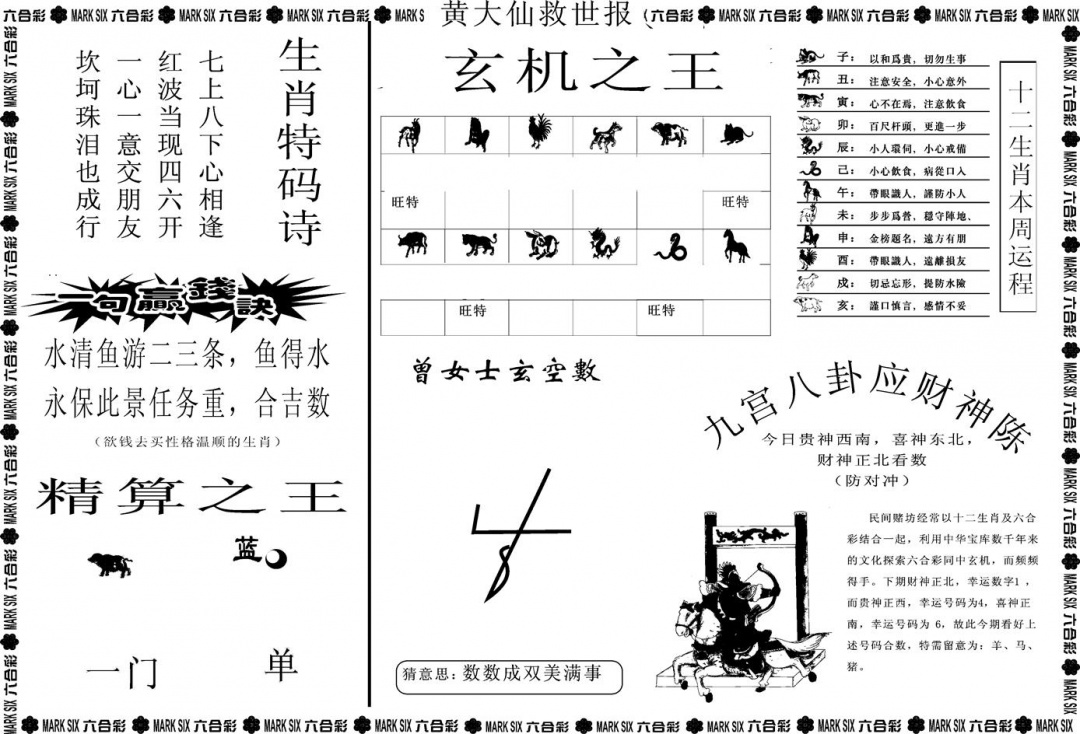 黄大仙救世报
生肖特码诗
七上八下心相逢
红波当现四六开
一心一意交朋友
坎坷珠泪也成行
一句赢錢訣
水清鱼游二三条，鱼得水
永保此景任务重，合吉数
（欲钱去买性格温顺的生肖）
精算之王
蓝
一门
单
玄机之王
旺特
旺特
旺特
旺特
曾女士玄空數
猜意思：数数成双美满事
十二生肖本周运程
子：以和爲貴，切勿生事
丑：注意安全，小心意外
寅：心不在焉，注意飲食
卯：百尺杆頭，更進一步
辰：小人環伺，小心戒備
己：小心飲食，病從口入
午：帶眼識人，謹防小人
未：步步爲營，穩守陣地、
申：金榜題名，遠方有朋
酉：帶眼識人，遠離損友
戍：切忌忘形，提防水險
亥：謹口慎言，感情不妥
九宫八卦应财神陈
今日贵神西南，喜神东北，
财神正北看数
（防对冲）
民间赌坊经常以十二生肖及六合
彩结合一起，利用中华宝库数千年来
的文化探索六合彩同中玄机，而频频
得手。下期财神正北，幸运数字1，
而贵神正西，幸运号码为4，喜神正
南，幸运号码为 6，故此今期看好上
述号码合数，特需留意为：羊、马、
猪。
MARK SIX 六合彩